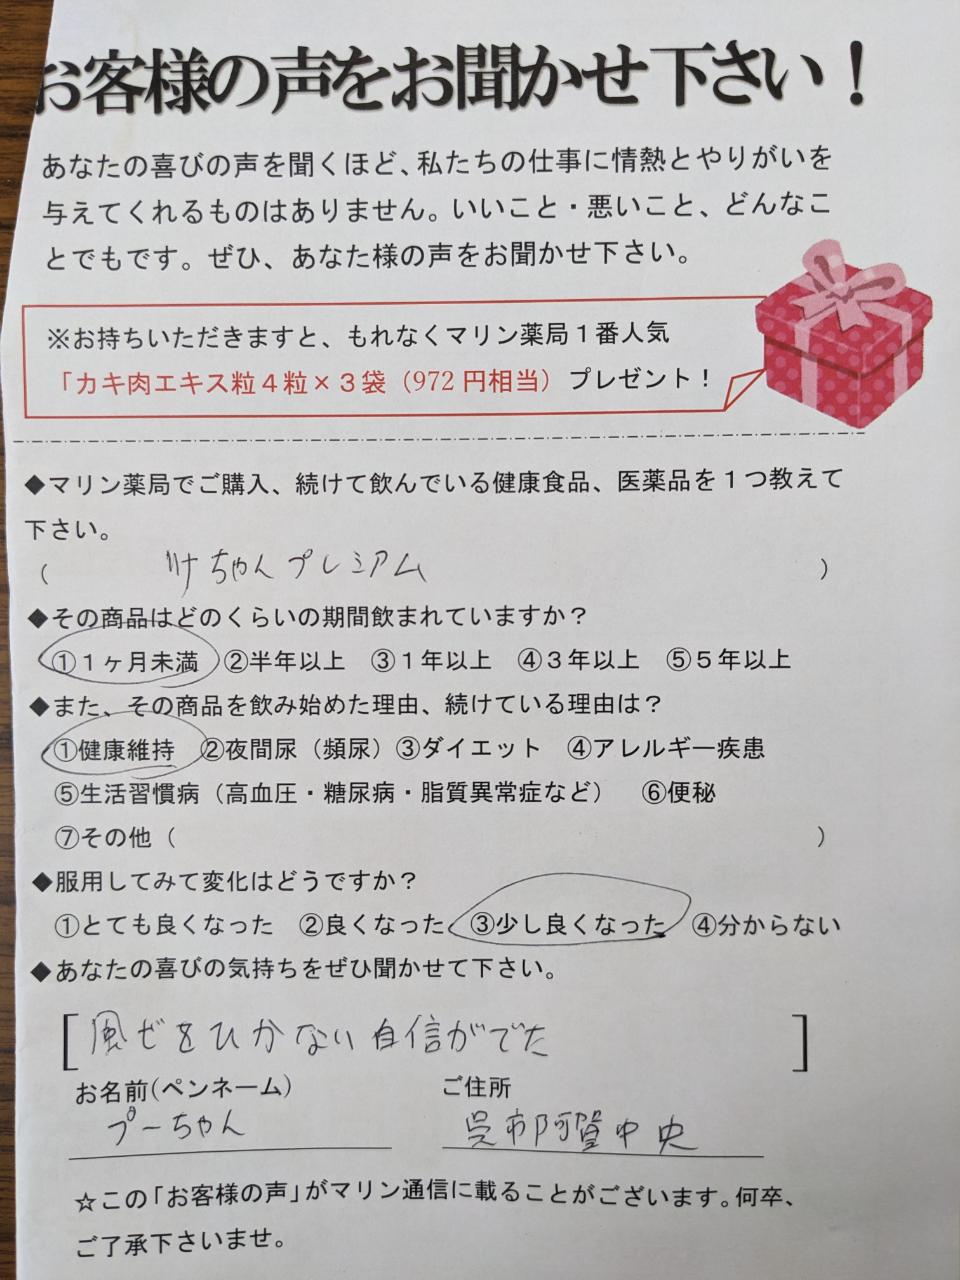 お客様の声をお聞かせ下さい！
あなたの喜びの声を聞くほど、私たちの仕事に情熱とやりがいを
与えてくれるものはありません。いいこと・悪いこと、どんなこ
とでもです。ぜひ、あなた様の声をお聞かせ下さい。
※お持ちいただきますと、もれなくマリン薬局１番人気
「カキ肉エキス粒４粒×３袋（972円相当）プレゼント！
◆マリン薬局でご購入、続けて飲んでいる健康食品、医薬品を１つ教えて
下さい。
（ けちゃんプレミアム ）
◆その商品はどのくらいの期間飲まれていますか？
①１ヶ月未満 ②半年以上 ③１年以上 ④３年以上 ⑤５年以上
◆また、その商品を飲み始めた理由、続けている理由は？
①健康維持 ②夜間尿（頻尿）③ダイエット ④アレルギー疾患
⑤生活習慣病（高血圧・糖尿病・脂質異常症など） ⑥便秘
⑦その他（ ）
◆服用してみて変化はどうですか？
①とても良くなった ②良くなった ③少し良くなった ④分からない
◆あなたの喜びの気持ちをぜひ聞かせて下さい。
[風ぜをひかない自信がでた]
お名前(ペンネーム) ご住所
プーちゃん 呉市阿賀中央
☆この「お客様の声」がマリン通信に載ることがございます。何卒、
ご了承下さいませ。